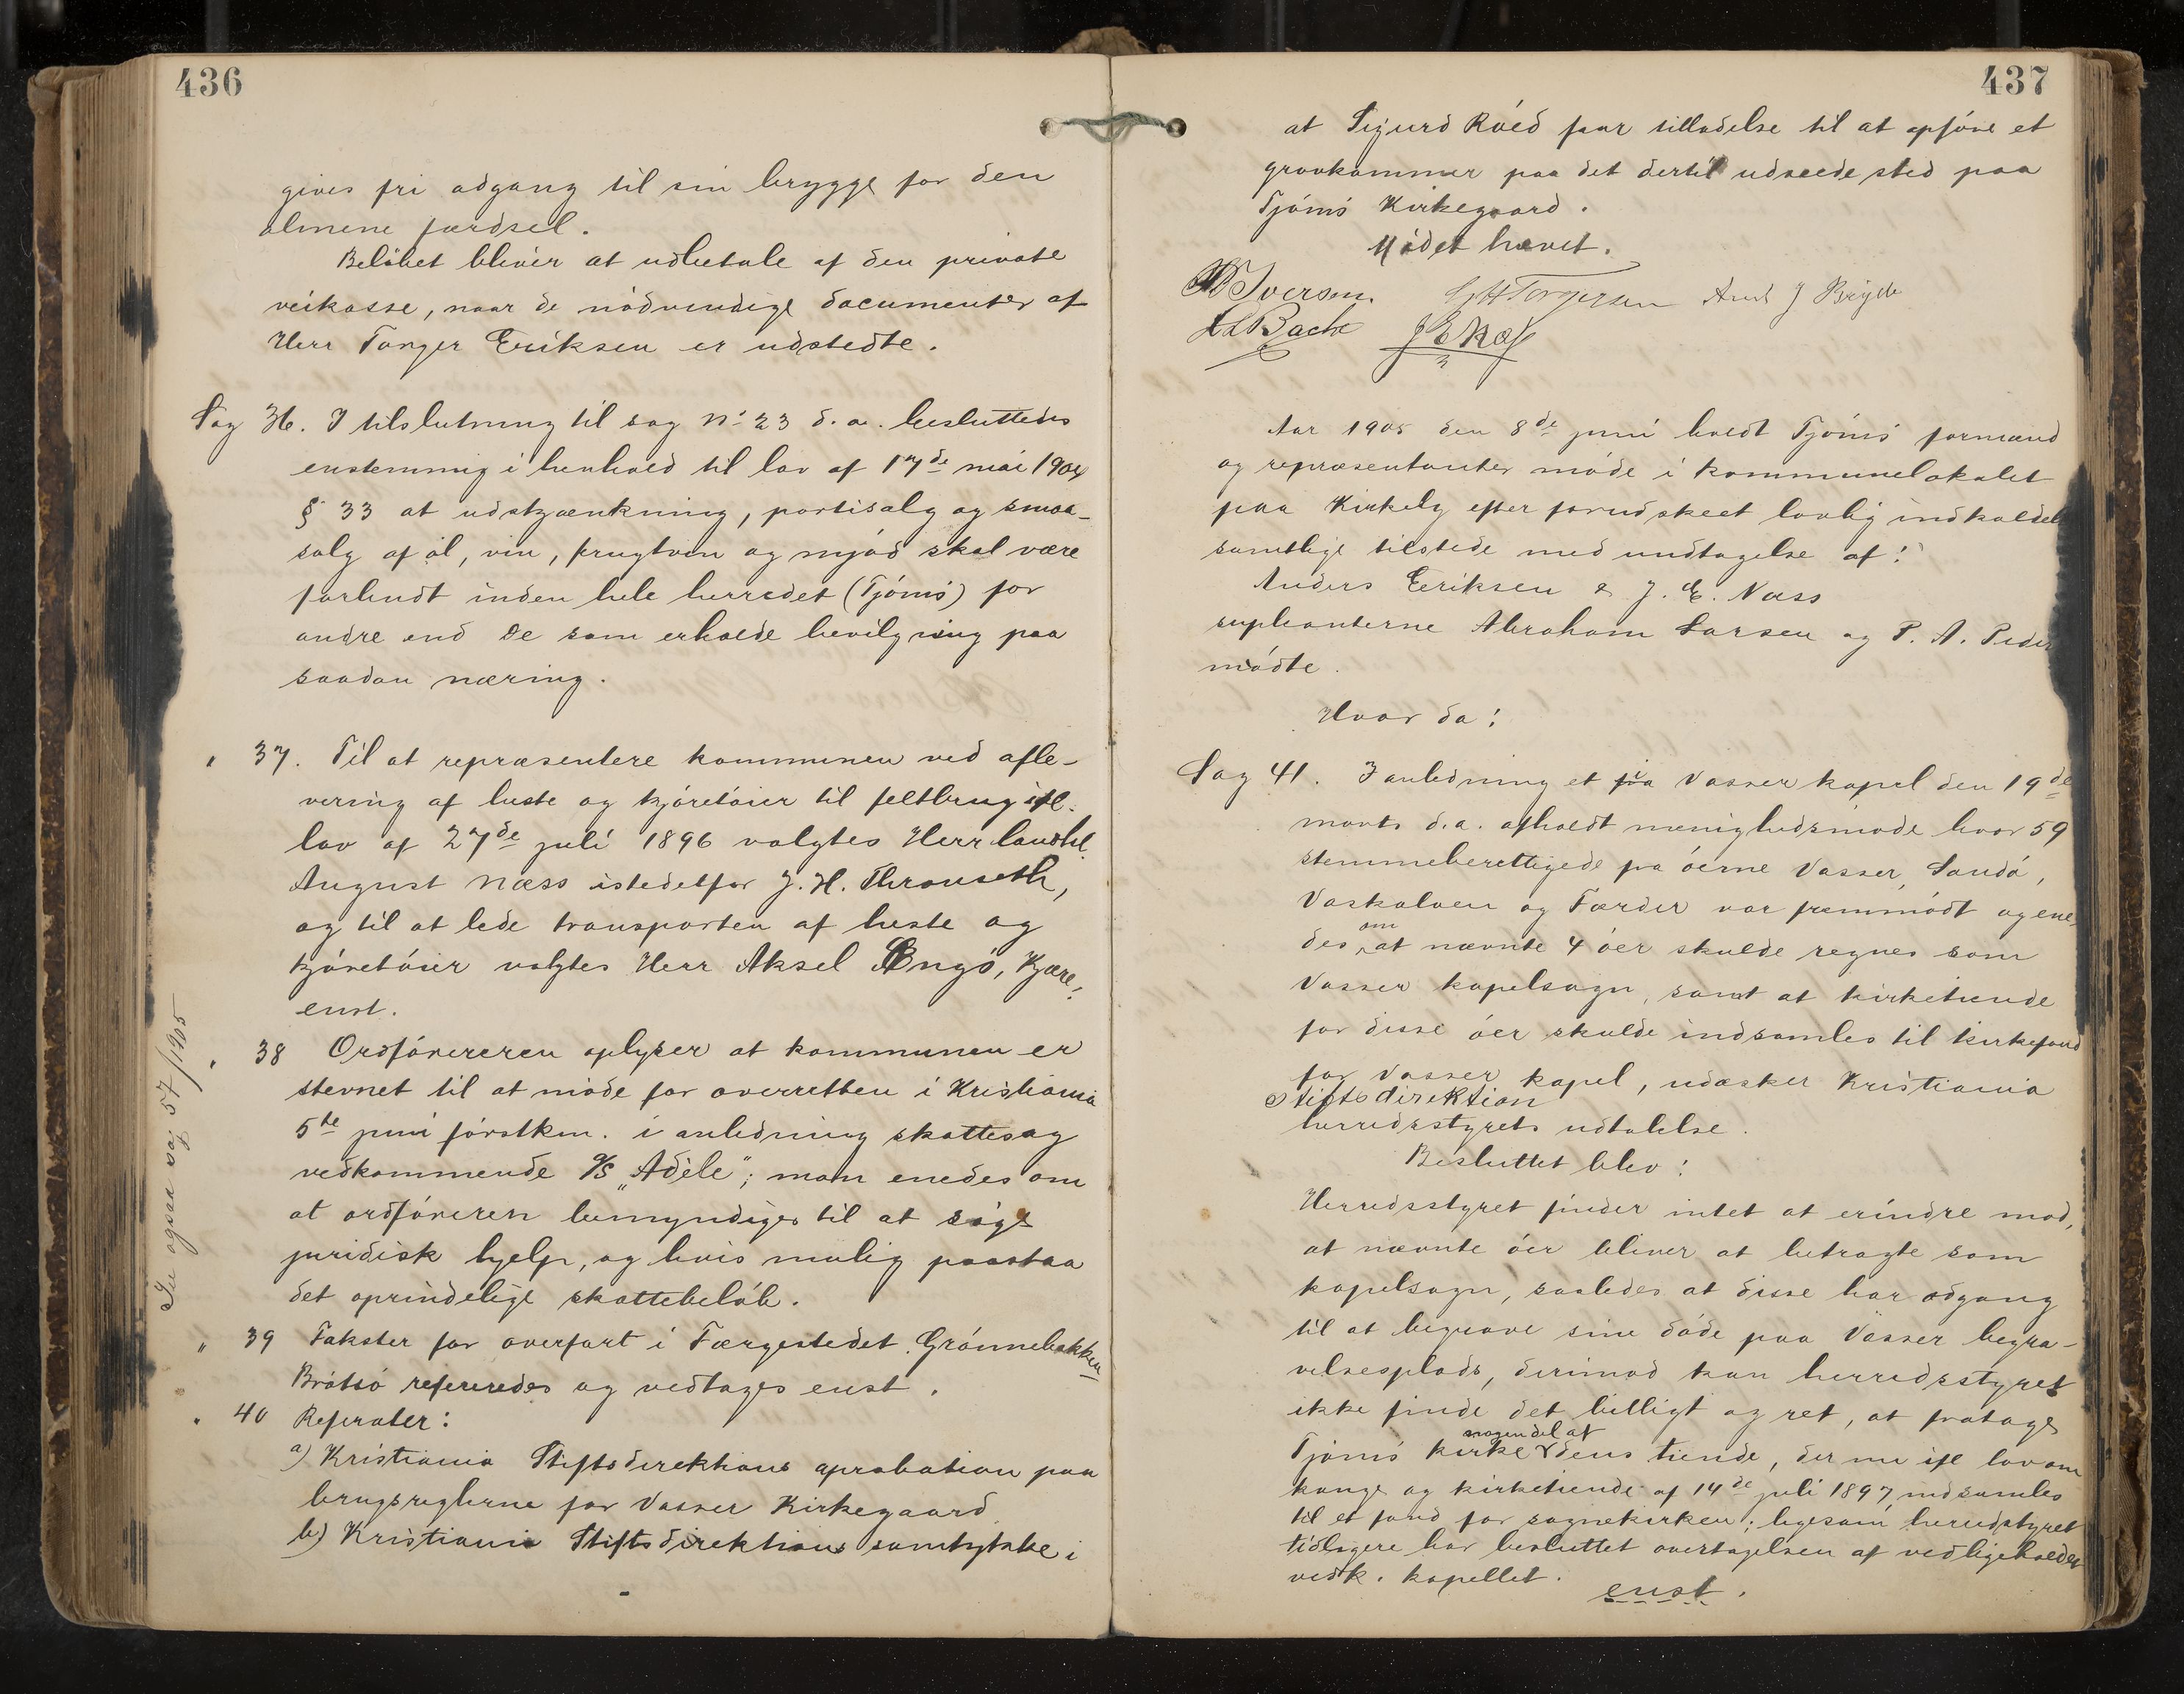 436
gives fri adgang til sin brygge for den
almene færdsel.
Beløbet bliver at udbetale af den private
veikasse, naar de nødvendige documenter af
Herr Torger Eriksen er udstedte.
Sag 36. I tilslutning til sag No 23 d.a. besluttedes
enstemmig i henhold til lov af 17de mai 1904
§ 33 at udskjænkning, partisalg og smaa-
salg af øl, vin, frugtvin og mjød skal være
forbudt inden hele herredet (Tjømø) for
andre end de som erholde bevilgning paa
saadan næring.
" 37. Til at repræsentere kommunen ved afle-
vering af heste og kjøretøier til feltbrug ifl.
lov af 27de juli 1896 valgtes Herr landhl.
August Næss istedetfor J. H. Throuseth,
og til at lede transporten af heste og
kjøretøier valgtes Herr Aksel Bngø, Kjære!
enst.
" 38 Ordførereren oplyser at kommunen er
stevnet til at møde for overretten i Kristiania
5te juni førstkm. i anledning skattesag
vedkommende A/S "Adéle"; man enedes om
at ordføreren bemyndiges til at søge
juridisk hjelp, og hvis mulig paastaa
det oprindelige skattebeløb.
Se ogsaa sag 57/1905
" 39 Takster for overfart i Færgestedet Grønnebakken
Brøtsø refereredes og vedtages enst.
" 40 Referater:
a) Kristiania Stiftsdirektions aprobation paa
brugsreglerne for Vasser Kirkegaard
b) Kristiania Stiftsdirektions samtykke i
437
at Sigurd Røed faar tilladelse til at opføre et
gravkammer paa det dertil udseede sted paa
Tjømø Kirkegaard.
Mødet hævet.
Iversen. G H Torgersen Arnt J Bryde
A L Bache J E Næss
Aar 1905 den 8de juni holdt Tjømø formænd
og repræsentanter møde i kommunelokalet
paa Kirkely efter forudskeet lovlig indkaldel
samtlige tilstede med undtagelse af:
Anders Eriksen & J. E. Næss
supleanterne Abraham Larsen og P. A. Peder
mødte.
Hvor da:
Sag 41. I anledning et paa Vasser kapel den 19de
marts d.a. afholdt menighedsmøde hvor 59
stemmeberettigede fra øerne Vasser, Sandø,
Vaskalven og Færder var fremmødt og ene
des om at nævnte 4 øer skulde regnes som
Vasser kapelsogn, samt at kirketiende
for disse øer skulde indsamles til kirkefond
for Vasser kapel, udæsker Kristiania
Stiftsdirektion
herredsstyrets udtalelse.
Besluttet blev:
Herredsstyret finder intet at erindre mod,
at nævnte øer bliver at betragte som
kapelsogn, saaledes at disse har adgang
til at begrave sine døde paa Vasser begra-
velsesplads, derimod kan herredsstyret
ikke finde det billigt og ret, at fratage
Tjømø kirke nogen del af dens tiende, der nu ifl lov om
konge og kirketiende af 14de juli 1897 indsamles
til et fond for sognekirken; ligesom herredstyret
tidligere har besluttet overtagelsen af vedligeholdel
vedk. kapellet.
enst.